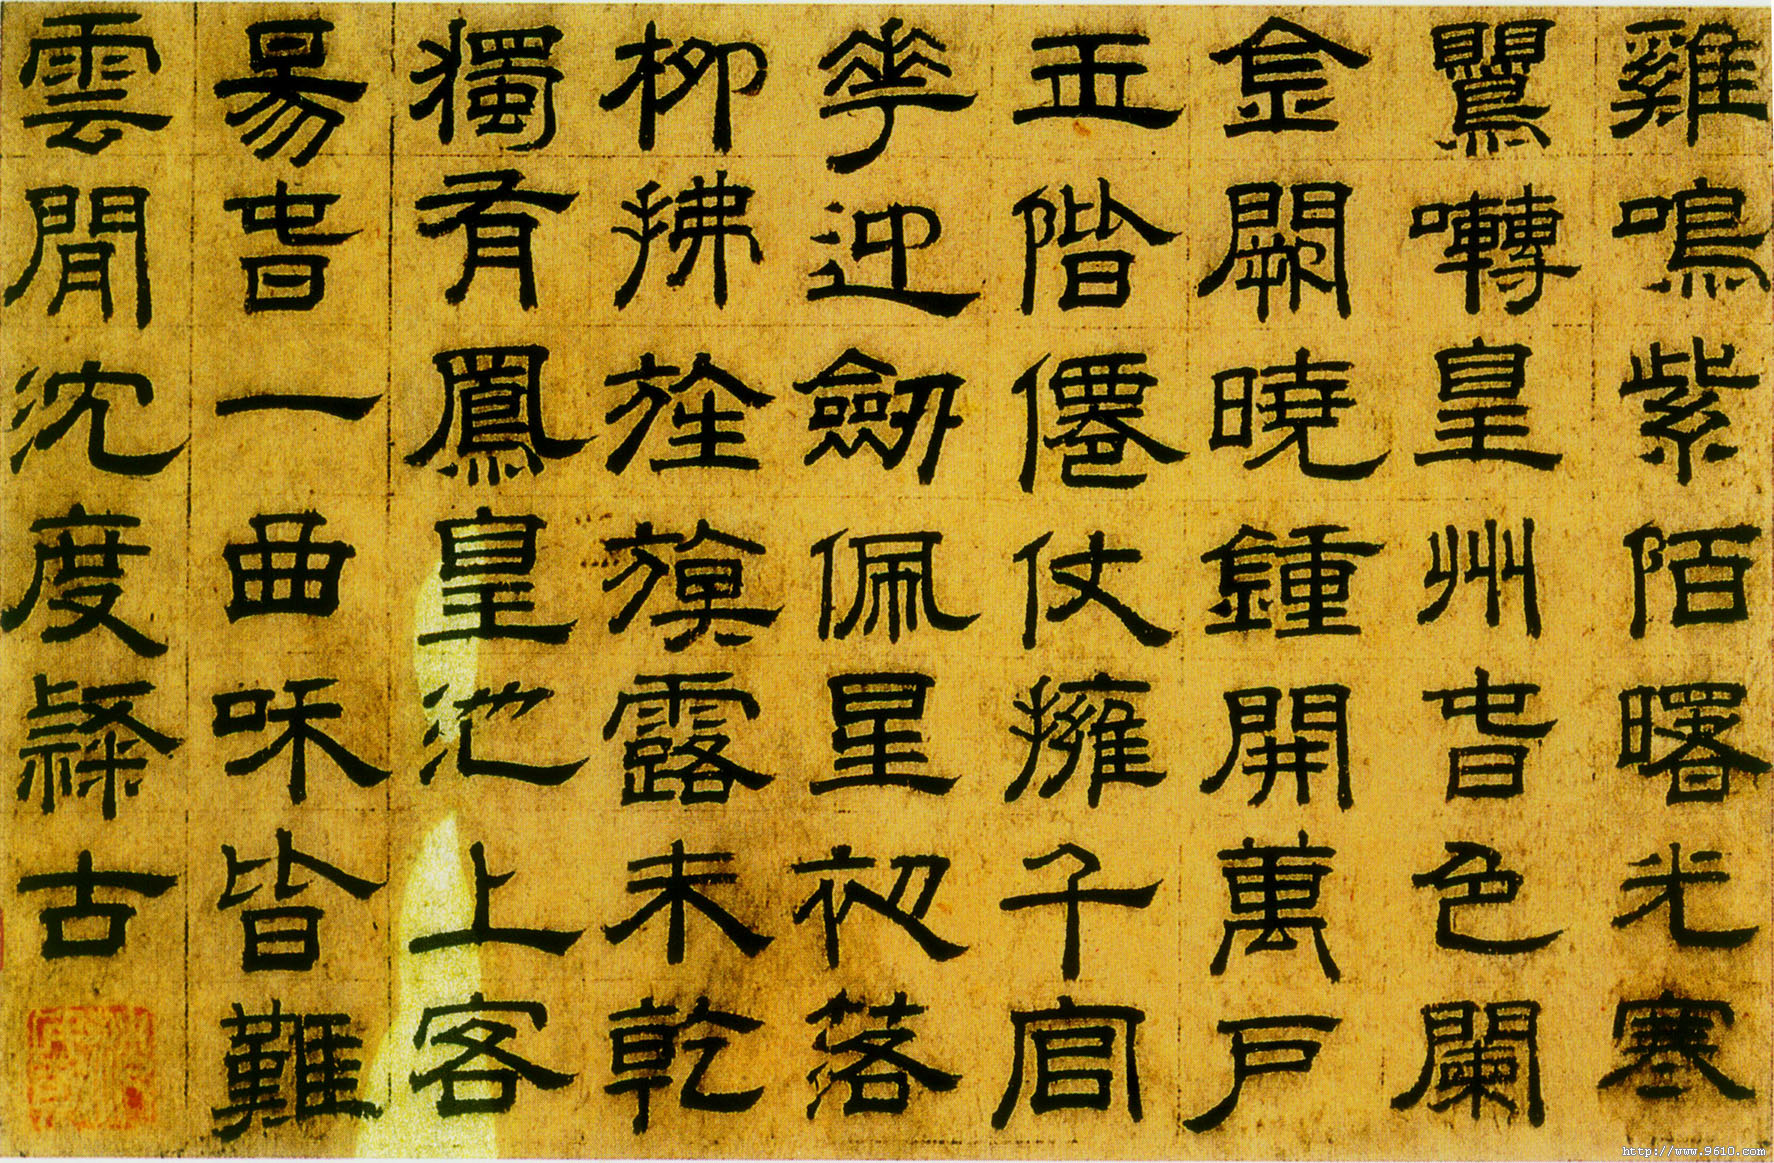 雞鳴紫陌曙光寒
鸎囀皇州旾色闌
金闕曉鍾開萬戶
玉階僊仗擁千官
華迎劒佩星初落
柳拂旌旗露未乾
獨有鳳皇池上客
昜旾一曲咊皆難
雲閒沈度隸古
http://www.9610.com